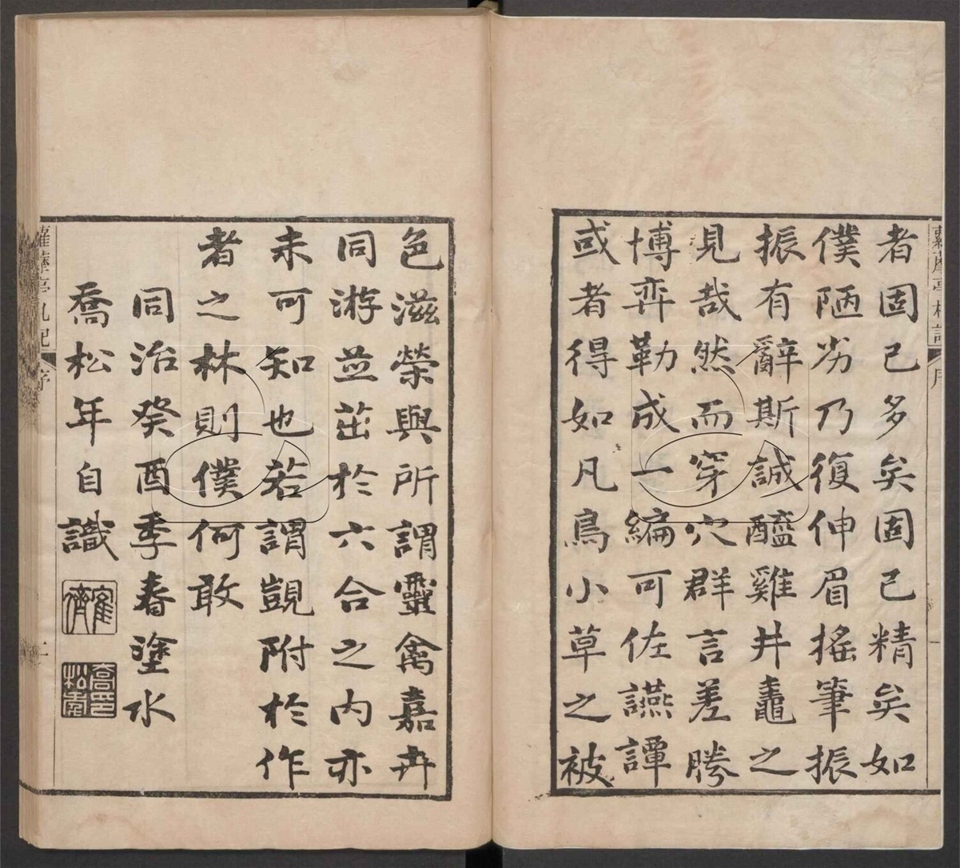 者固已多矣固已精矣如
僕陋劣乃復伸眉搖筆振
振有辭斯誠醯雞井鼃之
見哉然而穿穴群言差勝
博弈勒成一編可佐讌譚
或者得如凡鳥小草之被
色滋榮與所謂靈禽嘉卉
同游並茁於六合之内亦
未可知也若謂覬附於作
者之林則僕何敢
同治癸酉季春塗水
喬松年自識
喬印松年
蘿藦亭札記
序
二